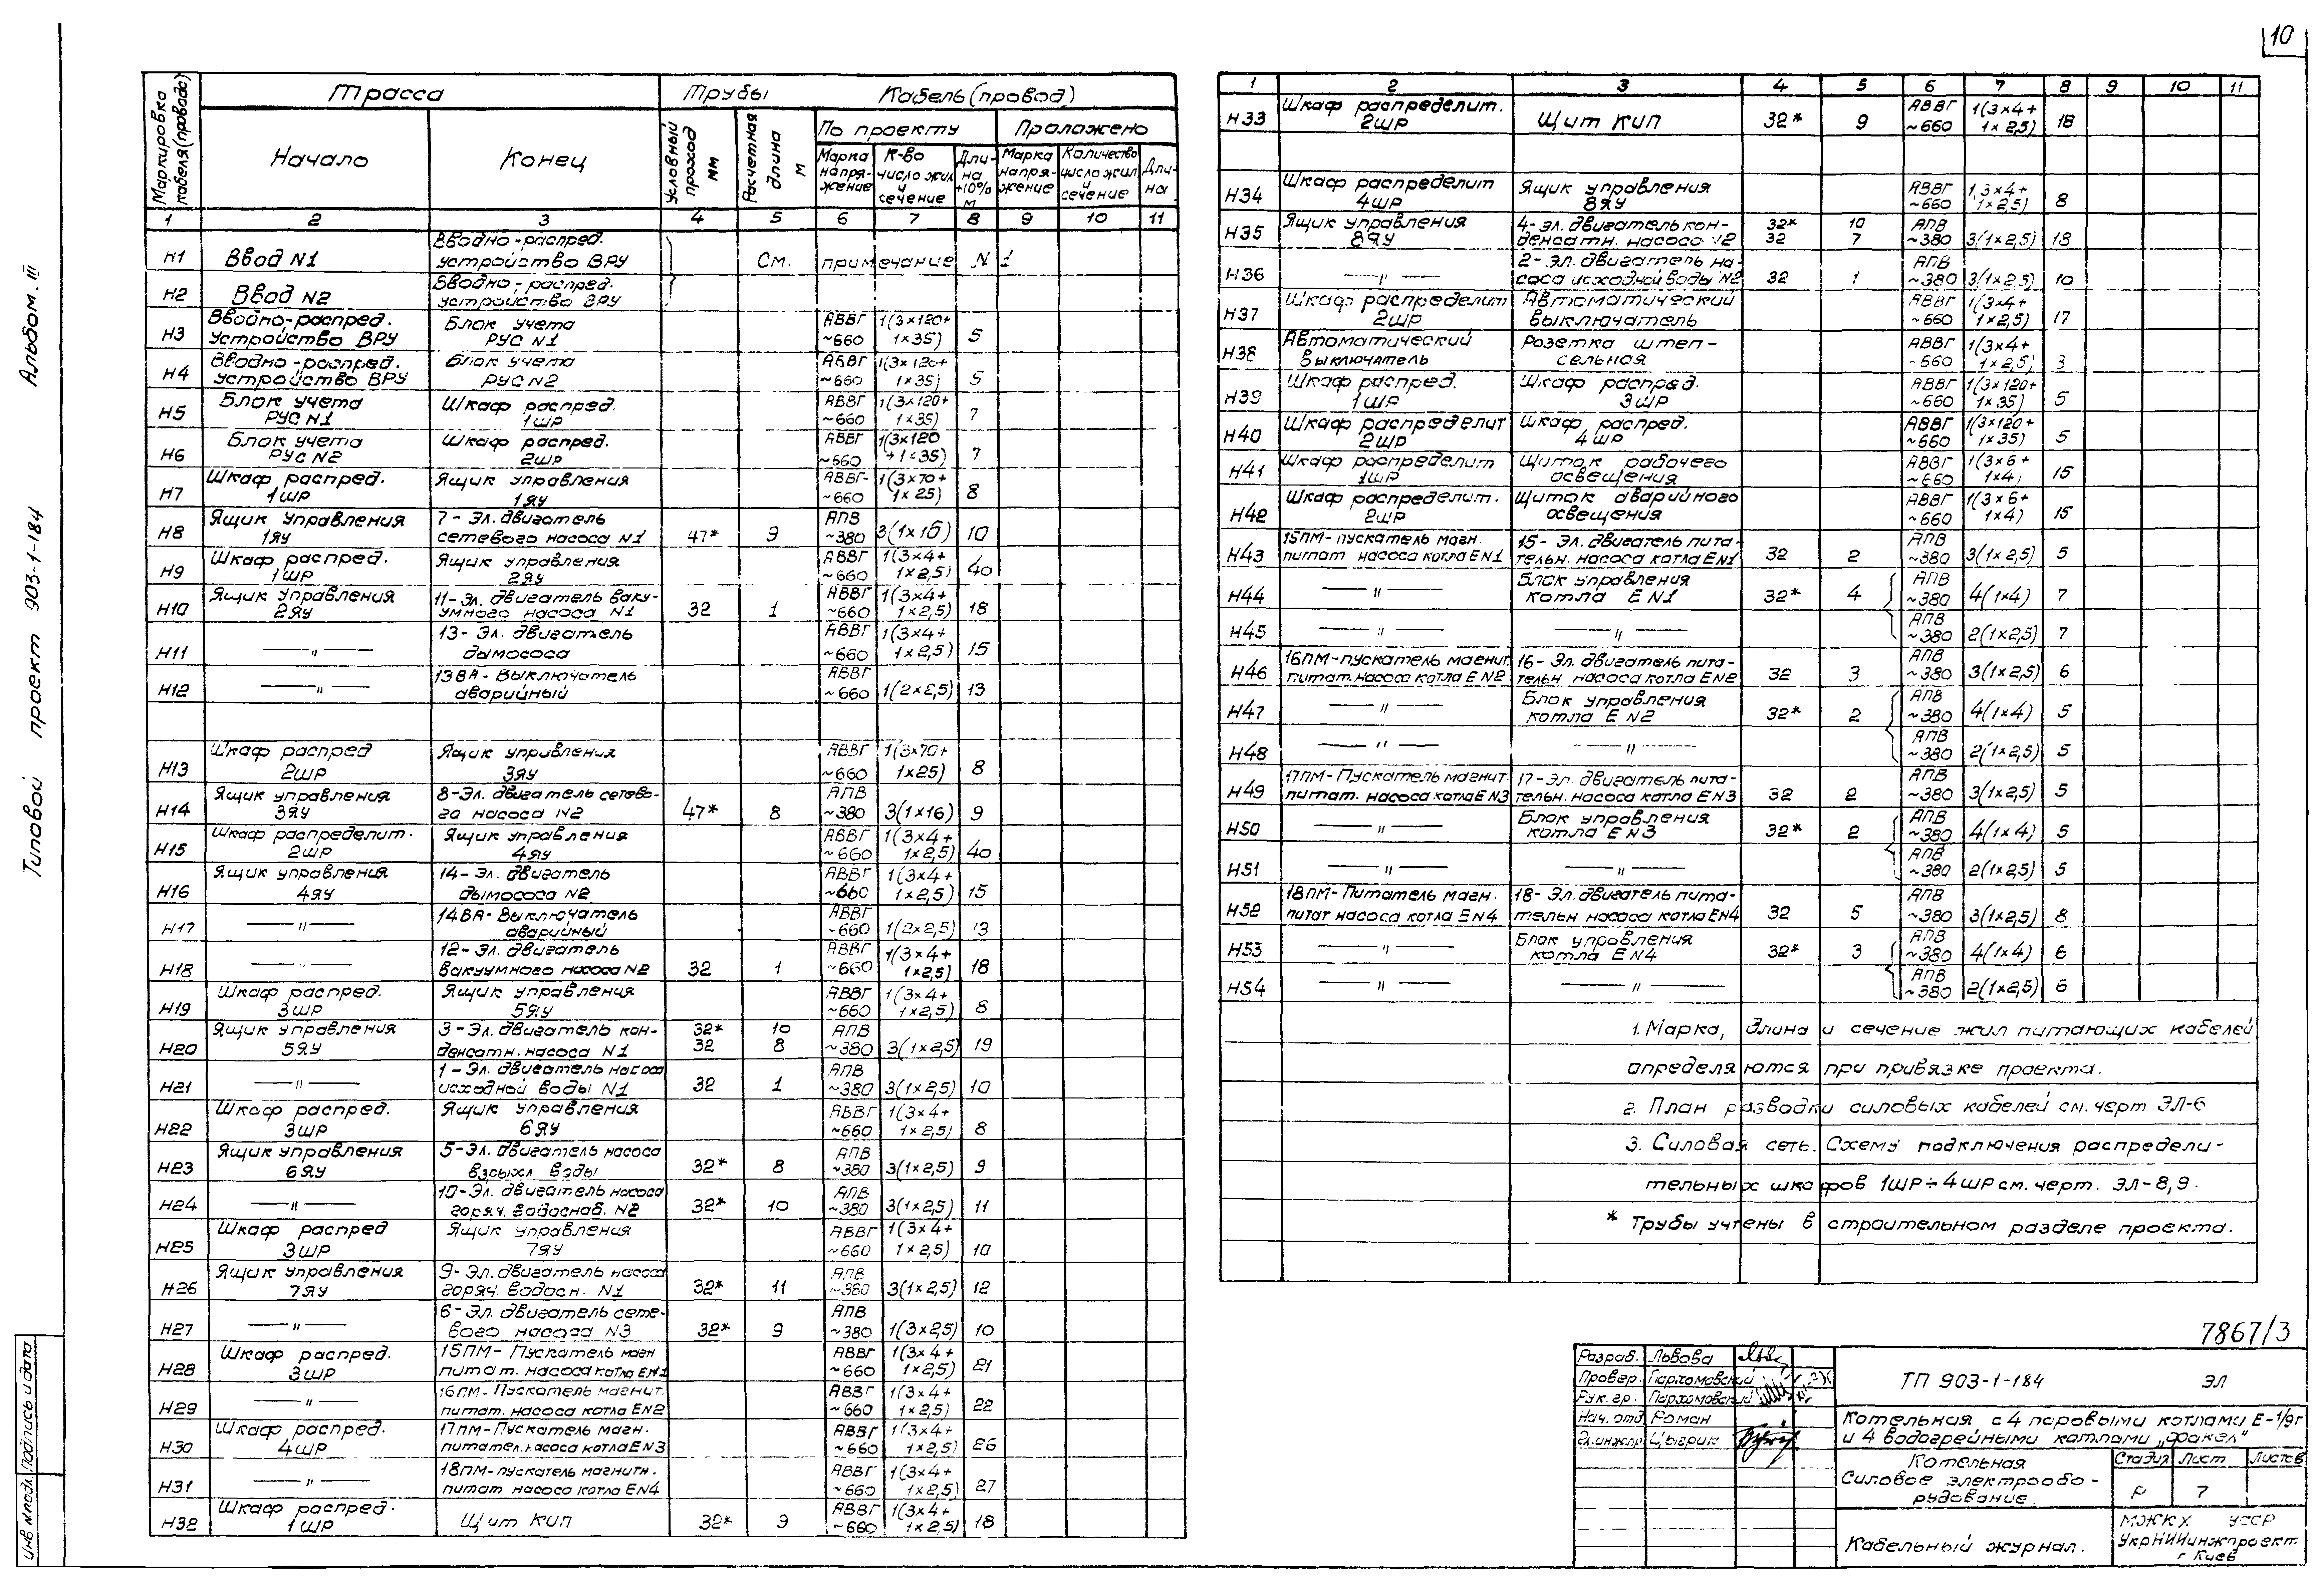 10
Альбом. III
Типовой проект 903-1-184
Инв № подл. Подпись и дата
Маркировка кабеля (провода) | Трасса | Трубы | Кабель (провод)
Начало | Конец | Условный проход мм | Расчетная длина м | По проекту | Проложено
Марка напря-жение | К-во число жил и сечение | Дли-на +10% м | Марка напря-жение | Количество число жил и сечение | Дли-на
1 2 3 4 5 6 7 8 9 10 11
Н1 Ввод N1 Вводно-распред. устройство ВРУ См. примечание N 1
Н2 Ввод N2 Вводно-распред. устройство ВРУ
Н3 Вводно-распред. устройство ВРУ Блок учета РУС N1 АВВГ ~660 1(3×120+ 1×35) 5
Н4 Вводно-распред. устройство ВРУ Блок учета РУС N2 АВВГ ~660 1(3×120+ 1×35) 5
Н5 Блок учета РУС N1 Шкаф распред. 1ШР АВВГ ~660 1(3×120+ 1×35) 7
Н6 Блок учета РУС N2 Шкаф распред. 2ШР АВВГ ~660 1(3×120 +1×35) 7
Н7 Шкаф распред. 1ШР Ящик управления 1ЯУ АВВГ- ~660 1(3×70+ 1×25) 8
Н8 Ящик управления 1ЯУ 7- Эл. двигатель сетевого насоса N1 47* 9 АПВ ~380 3(1×16) 10
Н9 Шкаф распред. 1ШР Ящик управления 2ЯУ АВВГ ~660 1(3×4+ 1×2,5) 40
Н10 Ящик управления 2ЯУ 11-Эл. двигатель ваку-умного насоса N1 32 1 АВВГ ~660 1(3×4+ 1×2,5) 18
Н11 —〃— 13- Эл. двигатель дымососа АВВГ ~660 1(3×4+ 1×2,5) 15
Н12 —〃— 13ВА- Выключатель аварийный АВВГ ~660 1(2×2,5) 13
Н13 Шкаф распред 2ШР Ящик управления 3ЯУ АВВГ ~660 1(3×70+ 1×25) 8
Н14 Ящик управления 3ЯУ 8-Эл. двигатель сетево-го насоса N2 47* 8 АПВ ~380 3(1×16) 9
Н15 Шкаф распределит. 2ШР Ящик управления 4ЯУ АВВГ ~660 1(3×4+ 1×2,5) 40
Н16 Ящик управления 4ЯУ 14- Эл. двигатель дымососа N2 АВВГ ~660 1(3×4+ 1×2,5) 15
Н17 —〃— 14ВА- Выключатель аварийный АВВГ ~660 1(2×2,5) 13
Н18 —〃— 12- Эл. двигатель вакуумного насоса N2 32 1 АВВГ ~660 1(3×4+ 1×2,5) 18
Н19 Шкаф распред. 3ШР Ящик управления 5ЯУ АВВГ ~660 1(3×4+ 1×2,5) 8
Н20 Ящик управления 5ЯУ 3-Эл. двигатель кон-денсатн. насоса N1 32* 32 10 8 АПВ ~380 3(1×2,5) 19
Н21 —〃— 1-Эл. двигатель насоса исходной воды N1 32 1 АПВ ~380 3(1×2,5) 10
Н22 Шкаф распред. 3ШР Ящик управления 6ЯУ АВВГ ~660 1(3×4+ 1×2,5) 8
Н23 Ящик управления 6ЯУ 5-Эл. двигатель насоса взрыхл воды 32* 8 АПВ ~380 3(1×2,5) 9
Н24 —〃— 10-Эл. двигатель насоса горяч. водоснаб. N2 32* 10 АПВ ~380 3(1×2,5) 11
Н25 Шкаф распред 3ШР Ящик управления 7ЯУ АВВГ ~660 1(3×4+ 1×2,5) 10
Н26 Ящик управления 7ЯУ 9-Эл. двигатель насоса горяч. водосн. N1 32* 11 АПВ ~380 3(1×2,5) 12
Н27 —〃— 6-Эл. двигатель сете-вого насоса N3 32* 9 АПВ ~380 1(3×2,5) 10
Н28 Шкаф распред. 3ШР 15ПМ- Пускатель магн питат. насоса котла ЕN1 АВВГ ~660 1(3×4+ 1×2,5) 21
Н29 —〃— 16ПМ-Пускатель магнит. питат. насоса котла ЕN2 АВВГ ~660 1(3×4+ 1×2,5) 22
Н30 Шкаф распред. 4ШР 17ПМ-Пускатель магн. питател. насоса котла ЕN3 АВВГ ~660 1(3×4+ 1×2,5) 26
Н31 —〃— 18ПМ-пускатель магнитн. питат насоса котла ЕN4 АВВГ ~660 1(3×4+ 1×2,5) 27
Н32 Шкаф распред. 1ШР Щит КИП 32* 9 АВВГ ~660 1(3×4+ 1×2,5) 18
1 2 3 4 5 6 7 8 9 10 11
Н33 Шкаф распределит. 2ШР Щит КИП 32* 9 АВВГ ~660 1(3×4+ 1×2,5) 18
Н34 Шкаф распределит 4ШР Ящик управления 8ЯУ АВВГ ~660 1,3×4+ 1×2,5) 8
Н35 Ящик управления 8ЯУ 4-эл. двигатель кон-денсатн. насоса N2 32* 32 10 7 АПВ ~380 3(1×2,5) 18
Н36 —〃— 2-Эл. двигатель на-соса исходной воды N2 32 1 АПВ ~380 3(1×2,5) 10
Н37 Шкаф распределит 2ШР Автоматический выключатель АВВГ ~660 1(3×4+ 1×2,5) 17
Н38 Автоматический выключатель Розетка штеп-сельная АВВГ ~660 1(3×4+ 1×2,5) 3
Н39 Шкаф распред. 1ШР Шкаф распред. 3ШР АВВГ ~660 1(3×120+ 1×35) 5
Н40 Шкаф распределит 2ШР Шкаф распред. 4ШР АВВГ ~660 1(3×120+ 1×35) 5
Н41 Шкаф распределит 1ШР Щиток рабочего освещения АВВГ ~660 1(3×6+ 1×4) 15
Н42 Шкаф распределит. 2ШР Щиток аварийного освещения АВВГ ~660 1(3×6+ 1×4) 15
Н43 15ПМ-пускатель магн. питат насоса котла ЕN1 15- Эл. двигатель пита-тельн. насоса котла ЕN1 32 2 АПВ ~380 3(1×2,5) 5
Н44 —〃— Блок управления котла ЕN1 32* 4 АПВ ~380 4(1×4) 7
Н45 —〃— —〃— АПВ ~380 2(1×2,5) 7
Н46 16ПМ-пускатель магнит. питат. насоса котла ЕN2 16- Эл. двигатель пита-тельн. насоса котла ЕN2 32 3 АПВ ~380 3(1×2,5) 6
Н47 —〃— Блок управления котла Е N2 32* 2 АПВ ~380 4(1×4) 5
Н48 —〃— —〃— АПВ ~380 2(1×2,5) 5
Н49 17ПМ- Пускатель магнит. питат. насоса котла ЕN3 17-Эл. двигатель пита-тельн. насоса котла ЕN3 32 2 АПВ ~380 3(1×2,5) 5
Н50 —〃— Блок управления котла ЕN3 32* 2 АПВ ~380 4(1×4) 5
Н51 —〃— —〃— АПВ ~380 2(1×2,5) 5
Н52 18ПМ- Питатель магн. питат насоса котла ЕN4 18- Эл. двигатель пита-тельн. насоса котла ЕN4 32 5 АПВ ~380 3(1×2,5) 8
Н53 —〃— Блок управления котла ЕN4 32* 3 АПВ ~380 4(1×4) 6
Н54 —〃— —〃— АПВ ~380 2(1×2,5) 6
1. Марка, длина и сечение жил питающих кабелей
определяются при привязке проекта.
2. План разводки силовых кабелей см. черт ЭЛ-6
3. Силовая сеть. Схему подключения распредели-
тельных шкафов 1ШР÷4ШР см. черт. ЭЛ-8,9.
* Трубы учтены в строительном разделе проекта.
7867/3
Разраб. Львова
Провер. Пархомовский
Рук. гр. Пархомовский
Нач. отд Роман
Гл.инж.пр Цыгрик
ТП 903-1-184 ЭЛ
Котельная с 4 паровыми котлами Е-1/9г
и 4 водогрейными котлами „Факел"
Котельная
Силовое электрообо-
рудование.
Стадия Лист Листов
Р 7
Кабельный журнал.
МЖКХ УССР
УкрНИИинжпроект.
г Киев